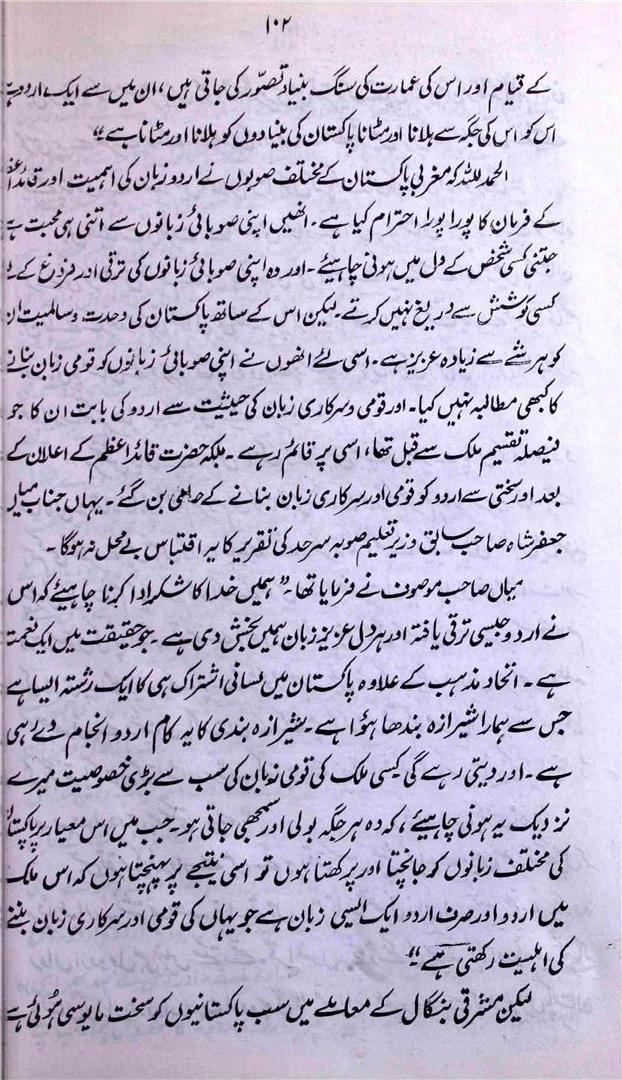 ۱۰۲
کے قیام اور اس کی عمارت کی سنگ بنیاد تصوّر کی جاتی ہیں، ان میں سے ایک اردو ہے
اس کو اس کی جگہ سے ہلانا اور مٹانا پاکستان کی بنیادوں کو ہلانا اور مٹانا ہے“
الحمد للّٰہ کہ مغربی پاکستان کے مختلف صوبوں نے اردو زبان کی اہمیت اور قائد اعظم
کے فرمان کا پورا پورا احترام کیا ہے۔ انھیں اپنی صوبائی زبانوں سے اتنی ہی محبت ہے
جتنی کسی شخص کے دل میں ہونی چاہیئے۔ اور وہ اپنی صوبائی زبانوں کی ترقی اور فروغ کے
کسی کوشش سے دریغ نہیں کرتے۔ لیکن اس کے ساتھ پاکستان کی وحدت و سالمیت ان
کو ہر شے سے زیادہ عزیز ہے۔ اسی لئے انھوں نے اپنی صوبائی زبانوں کو قومی زبان بنانے
کا کبھی مطالبہ نہیں کیا۔ اور قومی و سرکاری زبان کی حیثیت سے اردو کی بابت ان کا جو
فیصلہ تقسیم ملک سے قبل تھا، اسی پر قائم رہے۔ بلکہ حضرت قائد اعظم کے اعلان کے
بعد اور سختی سے اردو کو قومی اور سرکاری زبان بنانے کے حامی بن گئے۔ یہاں جناب میاں
جعفر شاہ صاحب سابق وزیر تعلیم صوبہ سرحد کی تقریر کا یہ اقتباس بے محل نہ ہوگا۔
میاں صاحب موصوف نے فرمایا تھا۔ ”ہمیں خدا کا شکر ادا کرنا چاہیئے کہ اس
نے اردو جیسی ترقی یافتہ اور ہر دل عزیز زبان ہمیں بخش دی ہے۔ جو حقیقت میں ایک نعمت
ہے۔ اتحاد مذہب کے علاوہ پاکستان میں لسانی اشتراک ہی کا ایک رشتہ ایسا ہے
جس سے ہمارا شیرازہ بندھا ہؤا ہے۔ شیرازہ بندی کا یہ کام اردو انجام دے رہی
ہے۔ اور دیتی رہے گی کسی ملک کی قومی زبان کی سب سے بڑی خصوصیت میرے
نزدیک یہ ہونی چاہیئے، کہ وہ ہر جگہ بولی اور سمجھی جاتی ہو۔ جب میں اس معیار پر پاکستان
کی مختلف زبانوں کو جانچتا اور پرکھتا ہوں تو اسی نتیجے پر پہنچتا ہوں کہ اس ملک
میں اردو اور صرف اردو ایک ایسی زبان ہے جو یہاں کی قومی اور سرکاری زبان بننے
کی اہلیت رکھتی ہے“
لیکن مشرقی بنگال کے معاملے میں سب پاکستانیوں کو سخت مایوسی ہوئی ہے